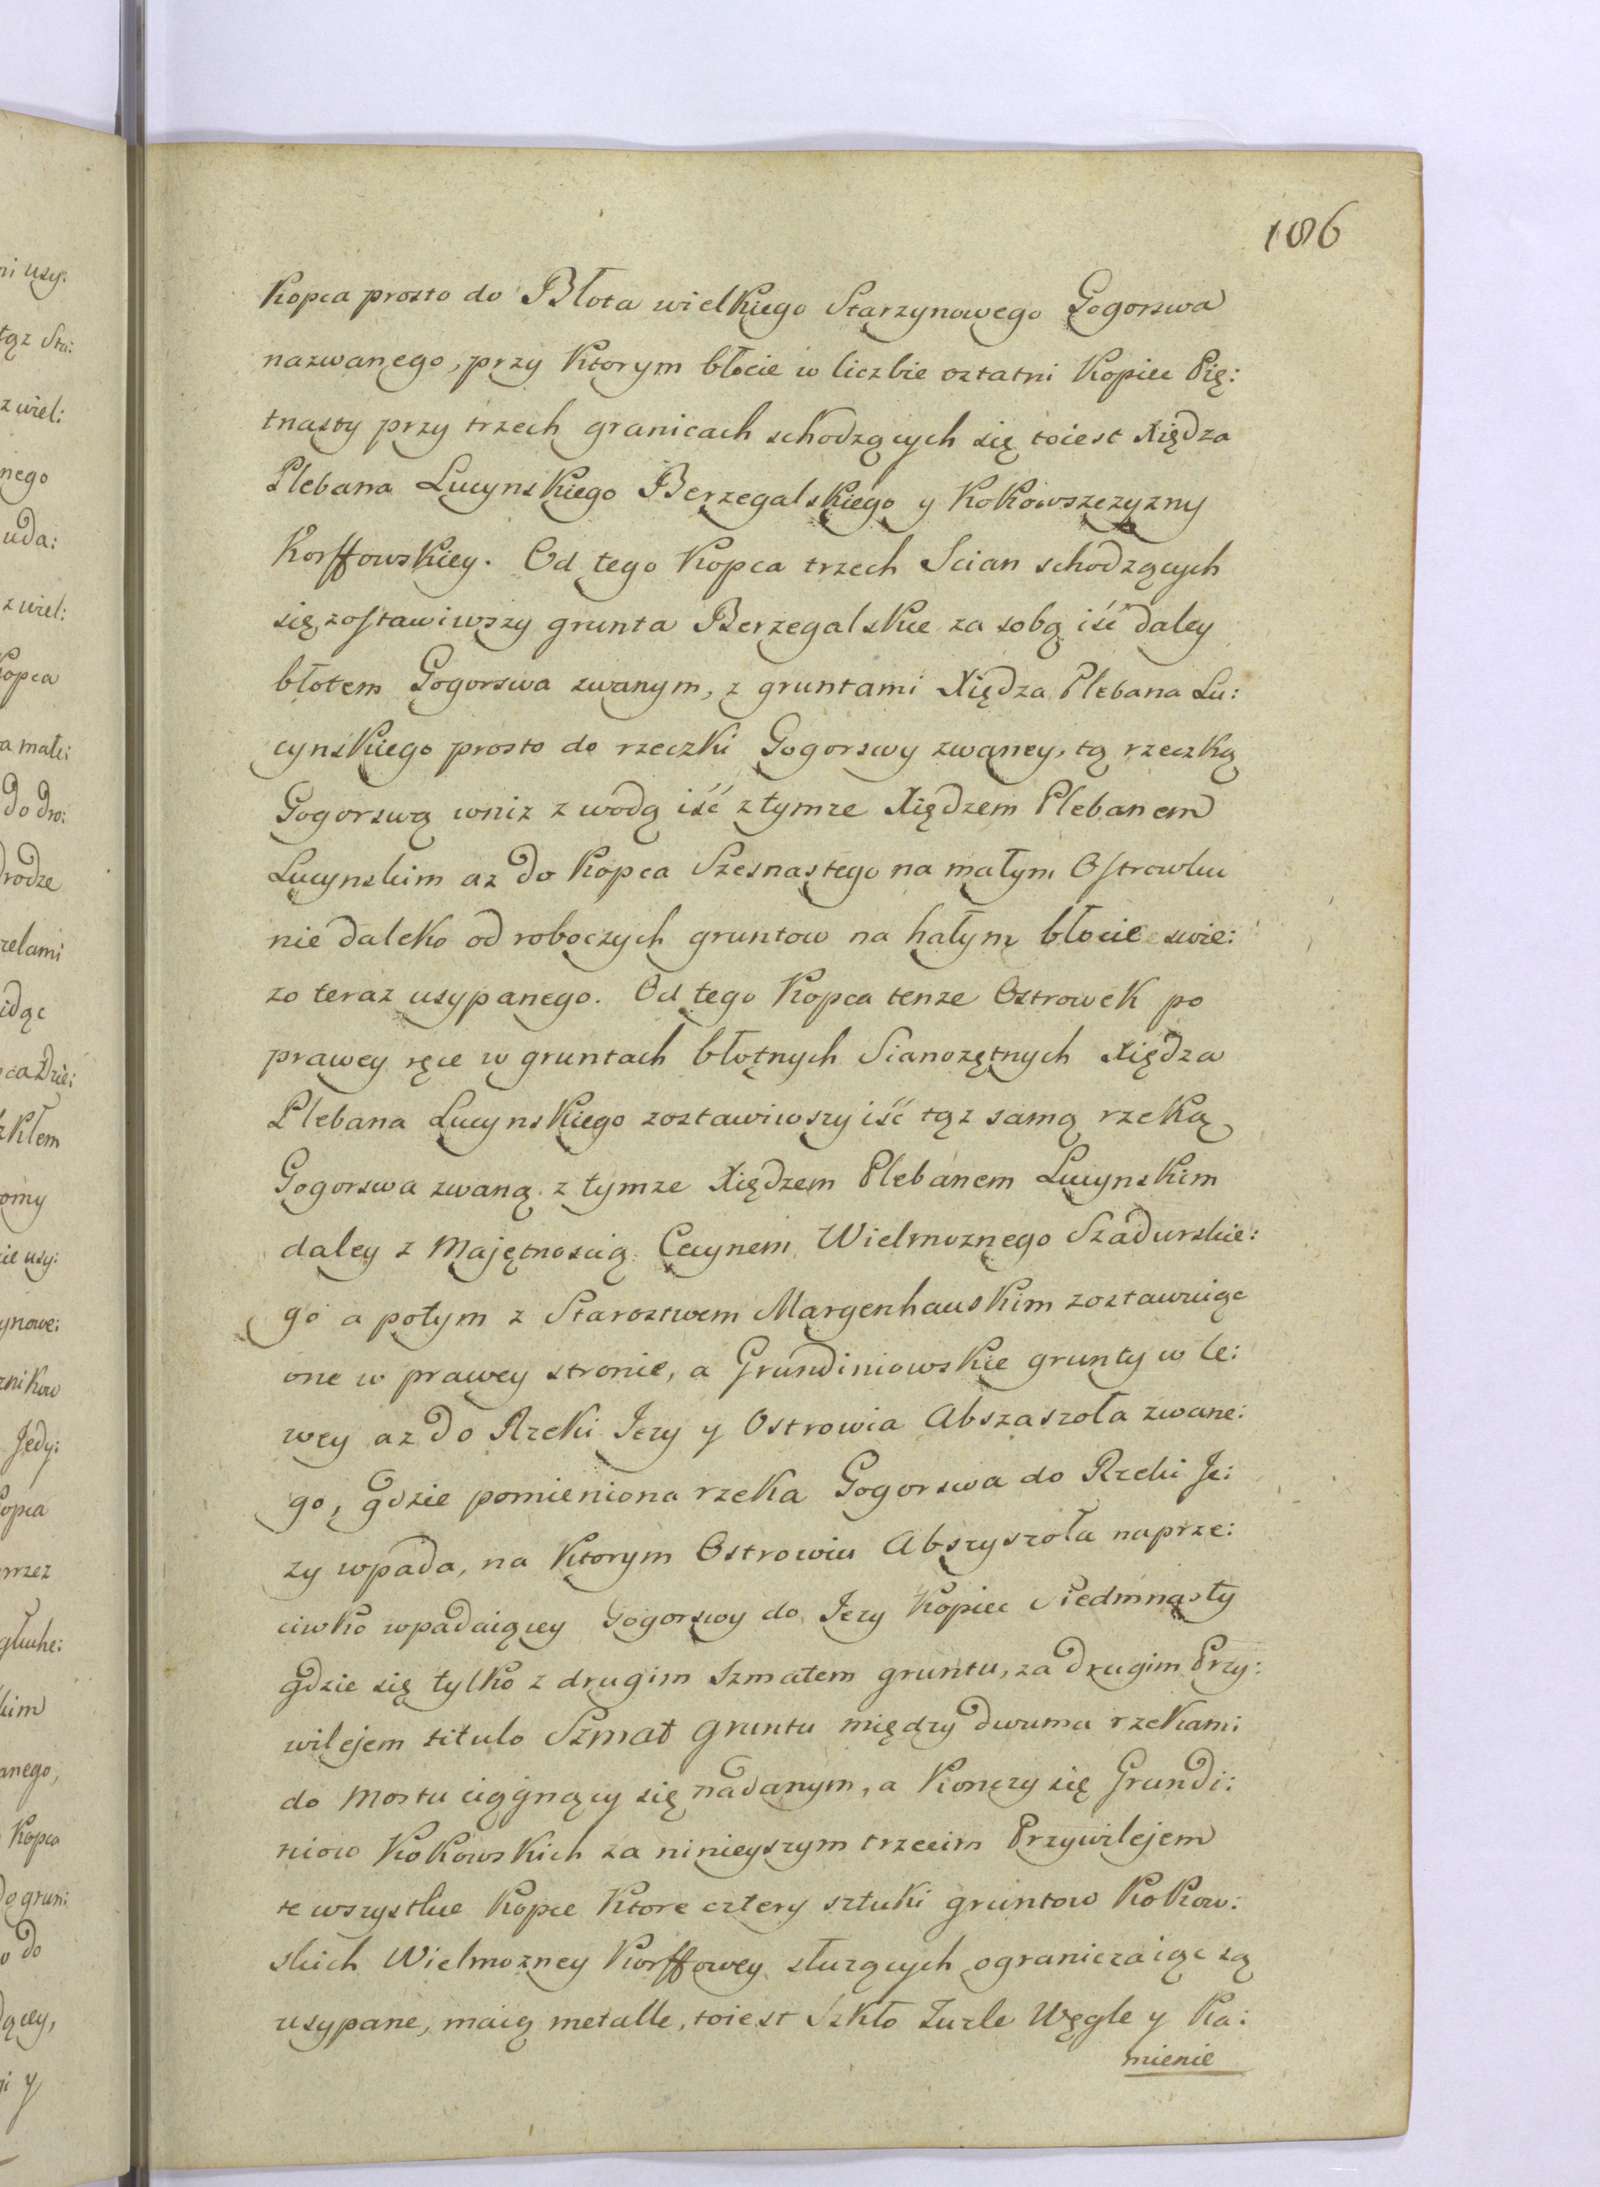 186
Kopca prosto do Błota wielkiego Starzynowego Gogorswa
nazwanego, przy Ktorym błocie w liczbie ostatni Kopiec Pię:
tnasty przy trzech granicach schodzących się toiest Xiędza
Plebana Lucynskiego Berzegalskiego y Kokowszczyzny
Korffowskiey. Od tego Kopca trzech Scian schodzących
się zostawiwszy grunta Berzegalskie za sobą iść daley
błotem Gogorswa zwanym, z gruntami Xiędza Plebana Lu:
cynskiego prosto do rzeczki Gogorswy zwaney, tą rzeczką
Gogorswą wniz z wodą iść z tymze Xiędzem Plebanem
Lucynskim az do Kopca Szesnastego na małym Ostrowku
nie daleko od roboczych gruntow na hałym błocie swie:
zo teraz usypanego. Od tego Kopca tenze Ostrowek po
prawey ręce w gruntach błotnych Sianozętnych Xiędza
Plebana Lucynskiego zostawiwszy iść tąz samą rzeką
Gogorswa zwaną z tymze Xiędzem Plebanem Lucynskim
daley z Majętnoscią Cecynem Wielmoznego Szadurskie:
go a potym z Starostwem Margenhauskim zostawuiąc
one w prawey stronie, a Grundiniowskie grunty w le:
wey az do Rzeki Iezy y Ostrowia Abszaszoła zwane:
go, gdzie pomieniona rzeka Gogorswa do Rzeki Ie:
zy wpada, na Ktorym Ostrowiu Abszyszołu naprze:
ciwko wpadaiącey Gogorswy do Iezy Kopiec Siedmnasty
gdzie się tylko z drugim Szmatem gruntu, za drugim Przy:
wilejem titulo Szmat gruntu między dwuma rzekami
do Mostu ciągnący się nadanym, a Konczy się Grundi:
niow Kokowskich za ninieyszym trzecim Przywilejem
te wszystkie Kopce Ktore cztery sztuki gruntow Kokow:
skich Wielmozney Korffowey słuzących ograniczaiąc są
usypane, maią metalle, toiest Szkło Zuzle Węgle y Ka:
mienie